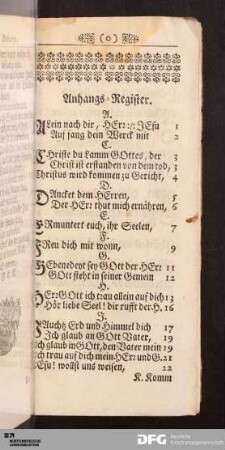 (0)
Anhangs-Register.
A.
ALein nach dir, HErr:/: JEsu 1
Auf sang dein Werck mit 2
C.
CHriste du Lamm GOttes, der 3
Christ ist erstanden von dem tod, 3
Christus wird kommen zu Gericht, 4
D.
DAncket dem HErren, 5
Der HErr thut mich ernähren, 6
E.
ERmuntert euch, ihr Seelen, 7
F.
FReu dich mit wonn, 9
G.
GEbenedeyt sey GOtt der HErr 11
GOtt steht in seiner Gemein 12
H.
HErr GOtt ich trau allein auf dich 13
Hör liebe Seel! dir rufft der H. 16
J.
JAuchtz Erd und Himmel dich 17
Ich glaub an GOtt Vater, 19
Ich glaub in GOtt, den Vater mein 19
Ich trau auf dich mein HErr und G. 21
JEsu! wollst uns weisen, 22
K. Komm
DFG
Deutsche
Forschungsgemeinschaft